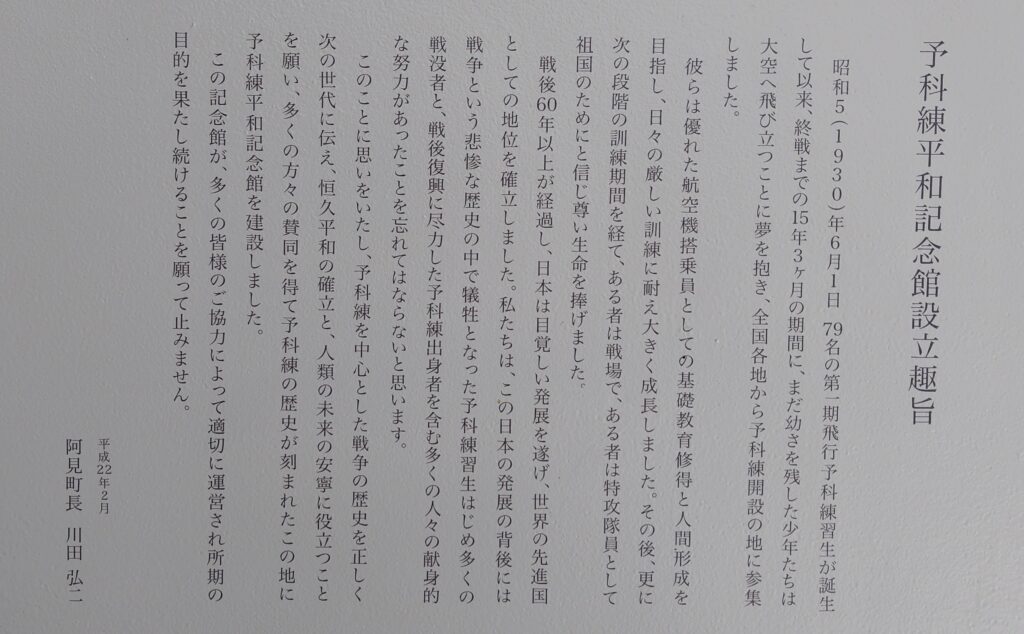 予科練平和記念館設立趣旨
昭和5(1930)年6月1日 79名の第一期飛行予科練習生が誕生
して以来、終戦までの15年3ヶ月の期間に、まだ幼さを残した少年たちは
大空へ飛び立つことに夢を抱き、全国各地から予科練開設の地に参集
しました。
彼らは優れた航空機搭乗員としての基礎教育修得と人間形成を
目指し、日々の厳しい訓練に耐え大きく成長しました。その後、更に
次の段階の訓練期間を経て、ある者は戦場で、ある者は特攻隊員として
祖国のためにと信じ尊い生命を捧げました。
戦後60年以上が経過し、日本は目覚しい発展を遂げ、世界の先進国
としての地位を確立しました。私たちは、この日本の発展の背後には
戦争という悲惨な歴史の中で犠牲となった予科練習生はじめ多くの
戦没者と、戦後復興に尽力した予科練出身者を含む多くの人々の献身的
な努力があったことを忘れてはならないと思います。
このことに思いをいたし、予科練を中心とした戦争の歴史を正しく
次の世代に伝え、恒久平和の確立と、人類の未来の安寧に役立つこと
を願い、多くの方々の賛同を得て予科練の歴史が刻まれたこの地に
予科練平和記念館を建設しました。
この記念館が、多くの皆様のご協力によって適切に運営され所期の
目的を果たし続けることを願って止みません。
平成22年2月
阿見町長 川田 弘二